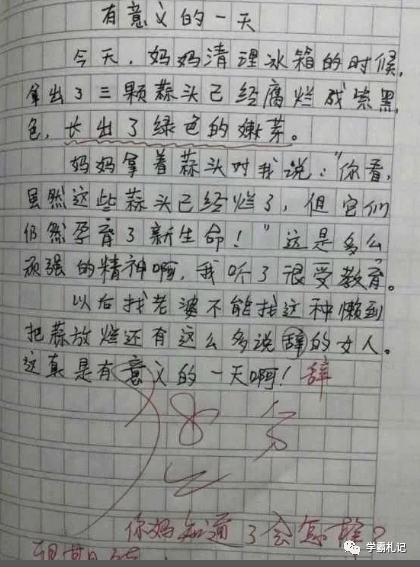 有意义的一天
今天，妈妈清理冰箱的时候，
拿出了三颗蒜头已经腐烂成紫黑
色，长出了绿色的嫩芽。
妈妈拿着蒜头对我说："你看，
虽然这些蒜头已经烂了，但它们
仍然孕育了新生命！"这是多么
顽强的精神啊，我听了很受教育。
以后找老婆不能找这种懒到
把蒜放烂还有这么多说辞的女人。
这真是有意义的一天啊！辞
你妈知道了会怎样？
学霸札记